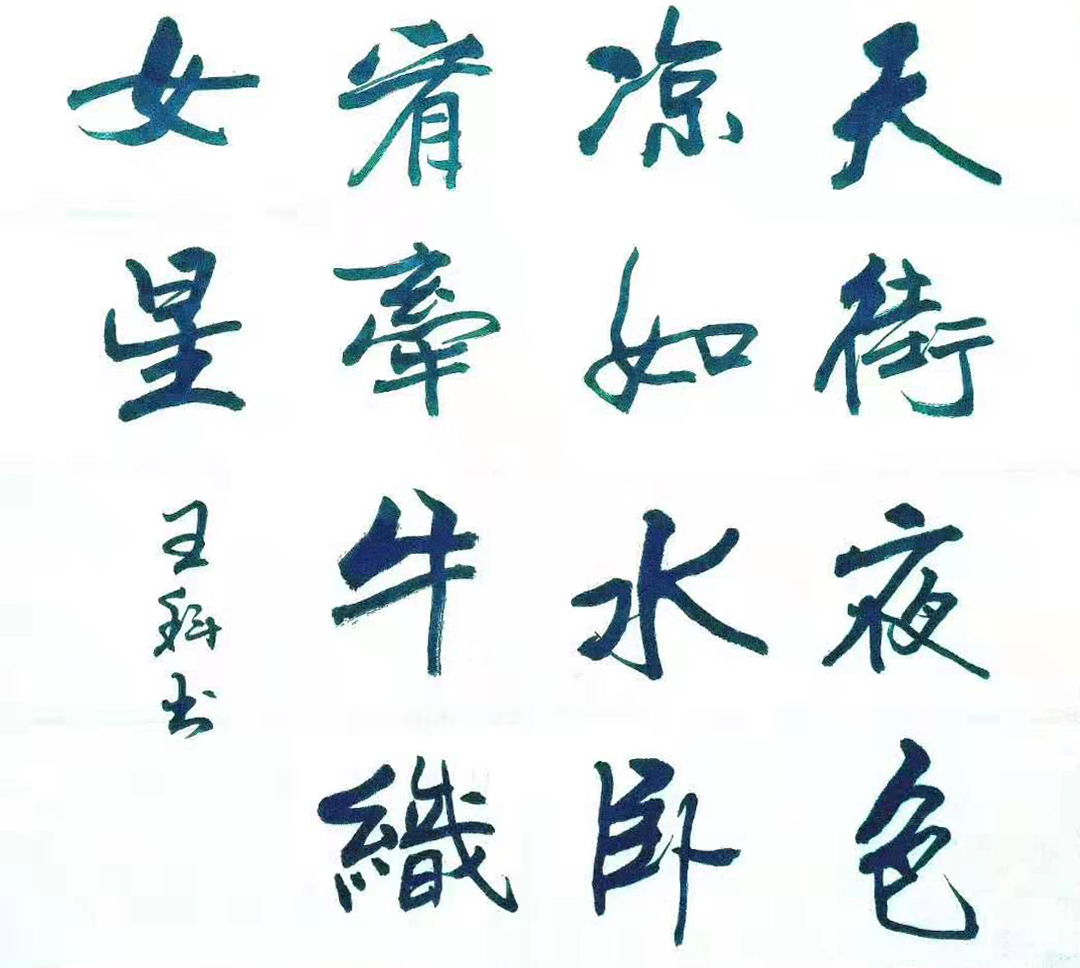 天街夜色
凉如水卧
看牵牛織
女星
王科书